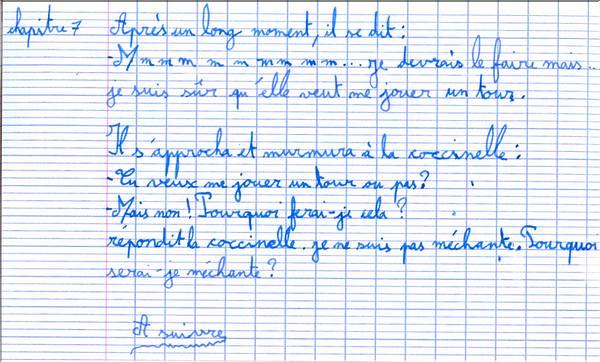 chapitre 7 Après un long moment, il se dit :
-M m m m m m m m m... je devrais le faire mais..
je suis sûr qu'elle veut me jouer un tour.
Il s'approcha et murmura à la coccinelle :
-Tu veux me jouer un tour ou pas ?
-Mais non ! Pourquoi ferai-je cela ?
répondit la coccinelle. je ne suis pas méchante. Pourquoi
serai-je méchante ?
A suivre